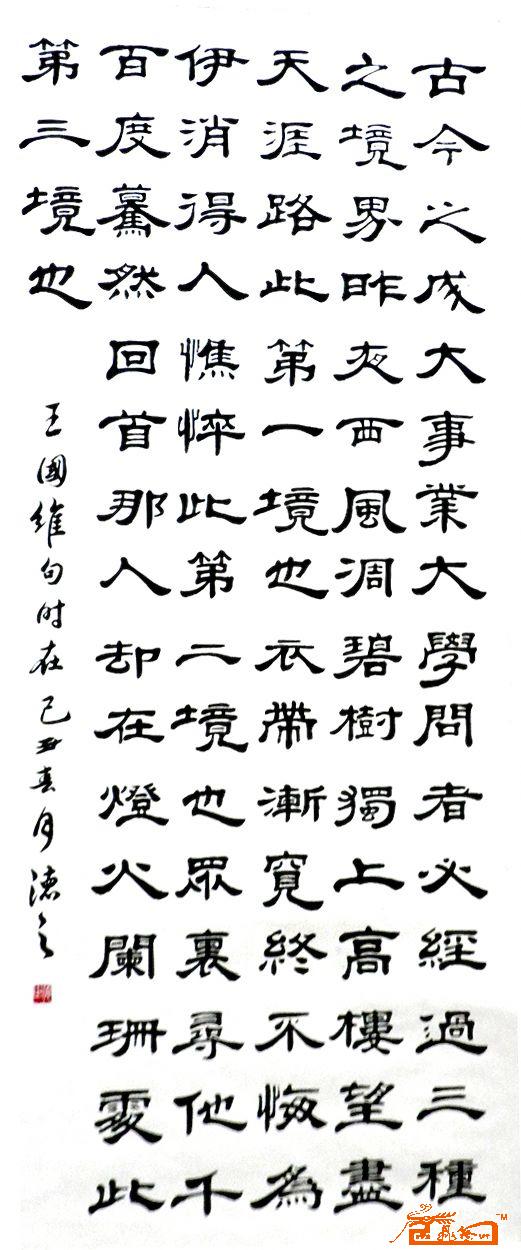 古今之成大事業大學問者必經過三種
之境界昨夜西風凋碧樹獨上高樓望盡
天涯路此第一境也衣帶漸寬終不悔為
伊消得人憔悴此第二境也眾裏尋他千
百度驀然回首那人却在燈火闌珊處此
第三境也
王國維句时在己丑春月
TM